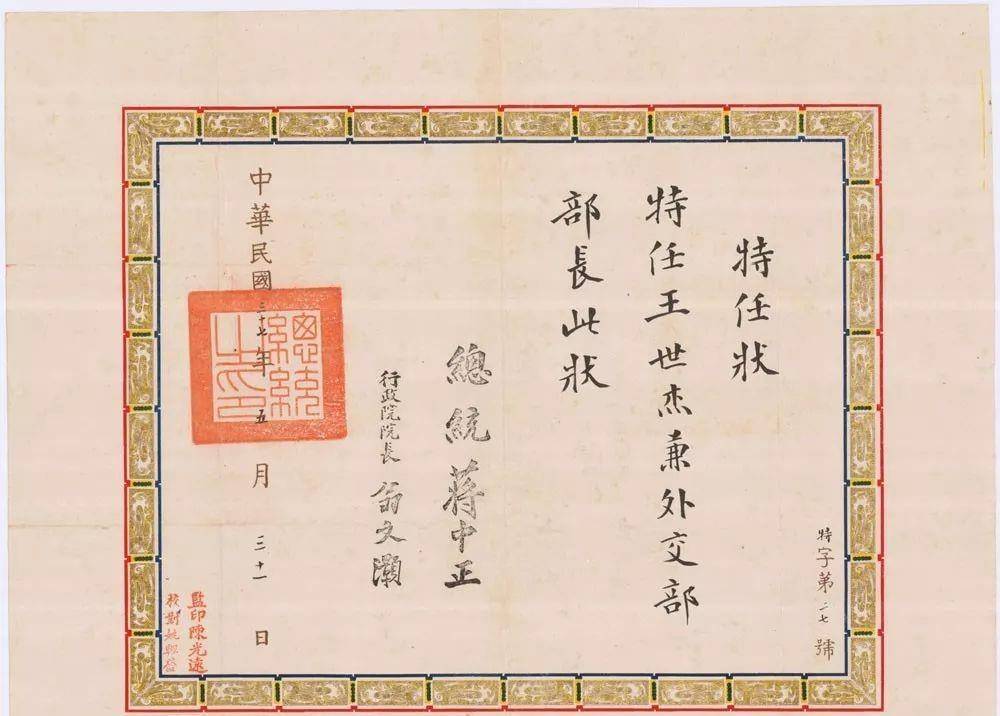 特字第二七號
特任狀
特任王世杰兼外交部
部長此狀
總統蔣中正
行政院院長翁文灝
中華民國三十七年五月三十一日
總統之印
監印陳光遠
校對姚興盛